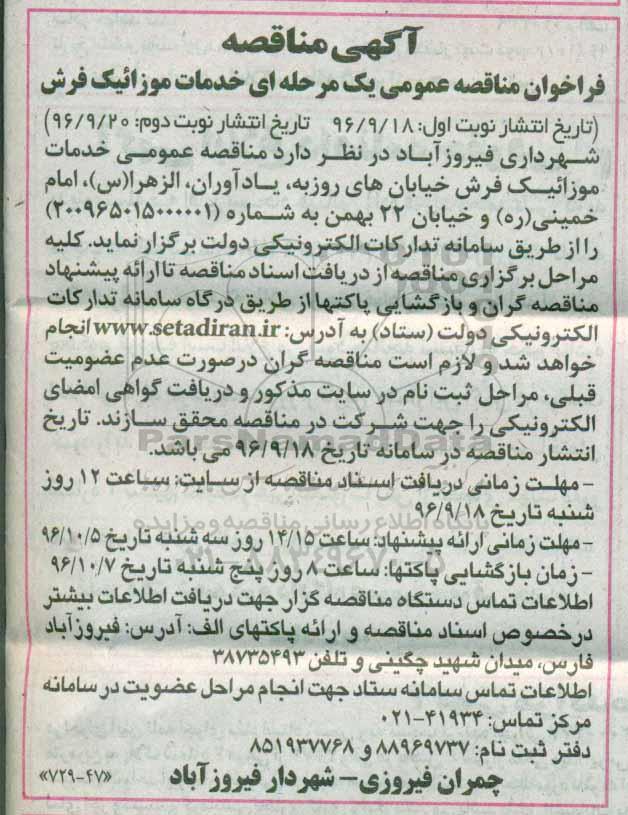 آگهی مناقصه
فراخوان مناقصه عمومی یک مرحله ای خدمات موزائیک فرش
(تاریخ انتشار نوبت اول: ۹۶/۹/۱۸ تاریخ انتشار نوبت دوم: ۹۶/۹/۲۰)
شهرداری فیروزآباد در نظر دارد مناقصه عمومی خدمات
موزائیک فرش خیابان های روزبه، یادآوران، الزهرا(س)، امام
خمینی(ره) و خیابان ۲۲ بهمن به شماره (۲۰۰۹۶۵۰۱۵۰۰۰۰۰۱)
را از طریق سامانه تدارکات الکترونیکی دولت برگزار نماید. کلیه
مراحل برگزاری مناقصه از دریافت اسناد مناقصه تا ارائه پیشنهاد
مناقصه گران و بازگشایی پاکتها از طریق درگاه سامانه تدارکات
الکترونیکی دولت (ستاد) به آدرس: www.setadiran.ir انجام
خواهد شد و لازم است مناقصه گران درصورت عدم عضومیت
قبلی، مراحل ثبت نام در سایت مذکور و دریافت گواهی امضای
الکترونیکی را جهت شرکت در مناقصه محقق سازند. تاریخ
انتشار مناقصه در سامانه تاریخ ۹۶/۹/۱۸ می باشد.
- مهلت زمانی دریافت اسناد مناقصه از سایت: ساعت ۱۲ روز
شنبه تاریخ ۹۶/۹/۱۸
- مهلت زمانی ارائه پیشنهاد: ساعت ۱۴/۱۵ روز سه شنبه تاریخ ۹۶/۱۰/۵
- زمان بازگشایی پاکتها: ساعت ۸ روز پنج شنبه تاریخ ۹۶/۱۰/۷
اطلاعات تماس دستگاه مناقصه گزار جهت دریافت اطلاعات بیشتر
درخصوص اسناد مناقصه و ارائه پاکتهای الف: آدرس: فیروزآباد
فارس، میدان شهید چگینی و تلفن ۳۸۷۳۵۴۹۳
اطلاعات تماس سامانه ستاد جهت انجام مراحل عضویت در سامانه
مرکز تماس: ۴۱۹۳۴-۰۲۱
دفتر ثبت نام: ۸۸۹۶۹۷۳۷ و ۸۵۱۹۳۷۷۶۸
چمران فیروزی- شهردار فیروزآباد «۷۲۹-۴۷»
ParsNamadData
پایگاه اطلاع رسانی مناقصه و مزایده